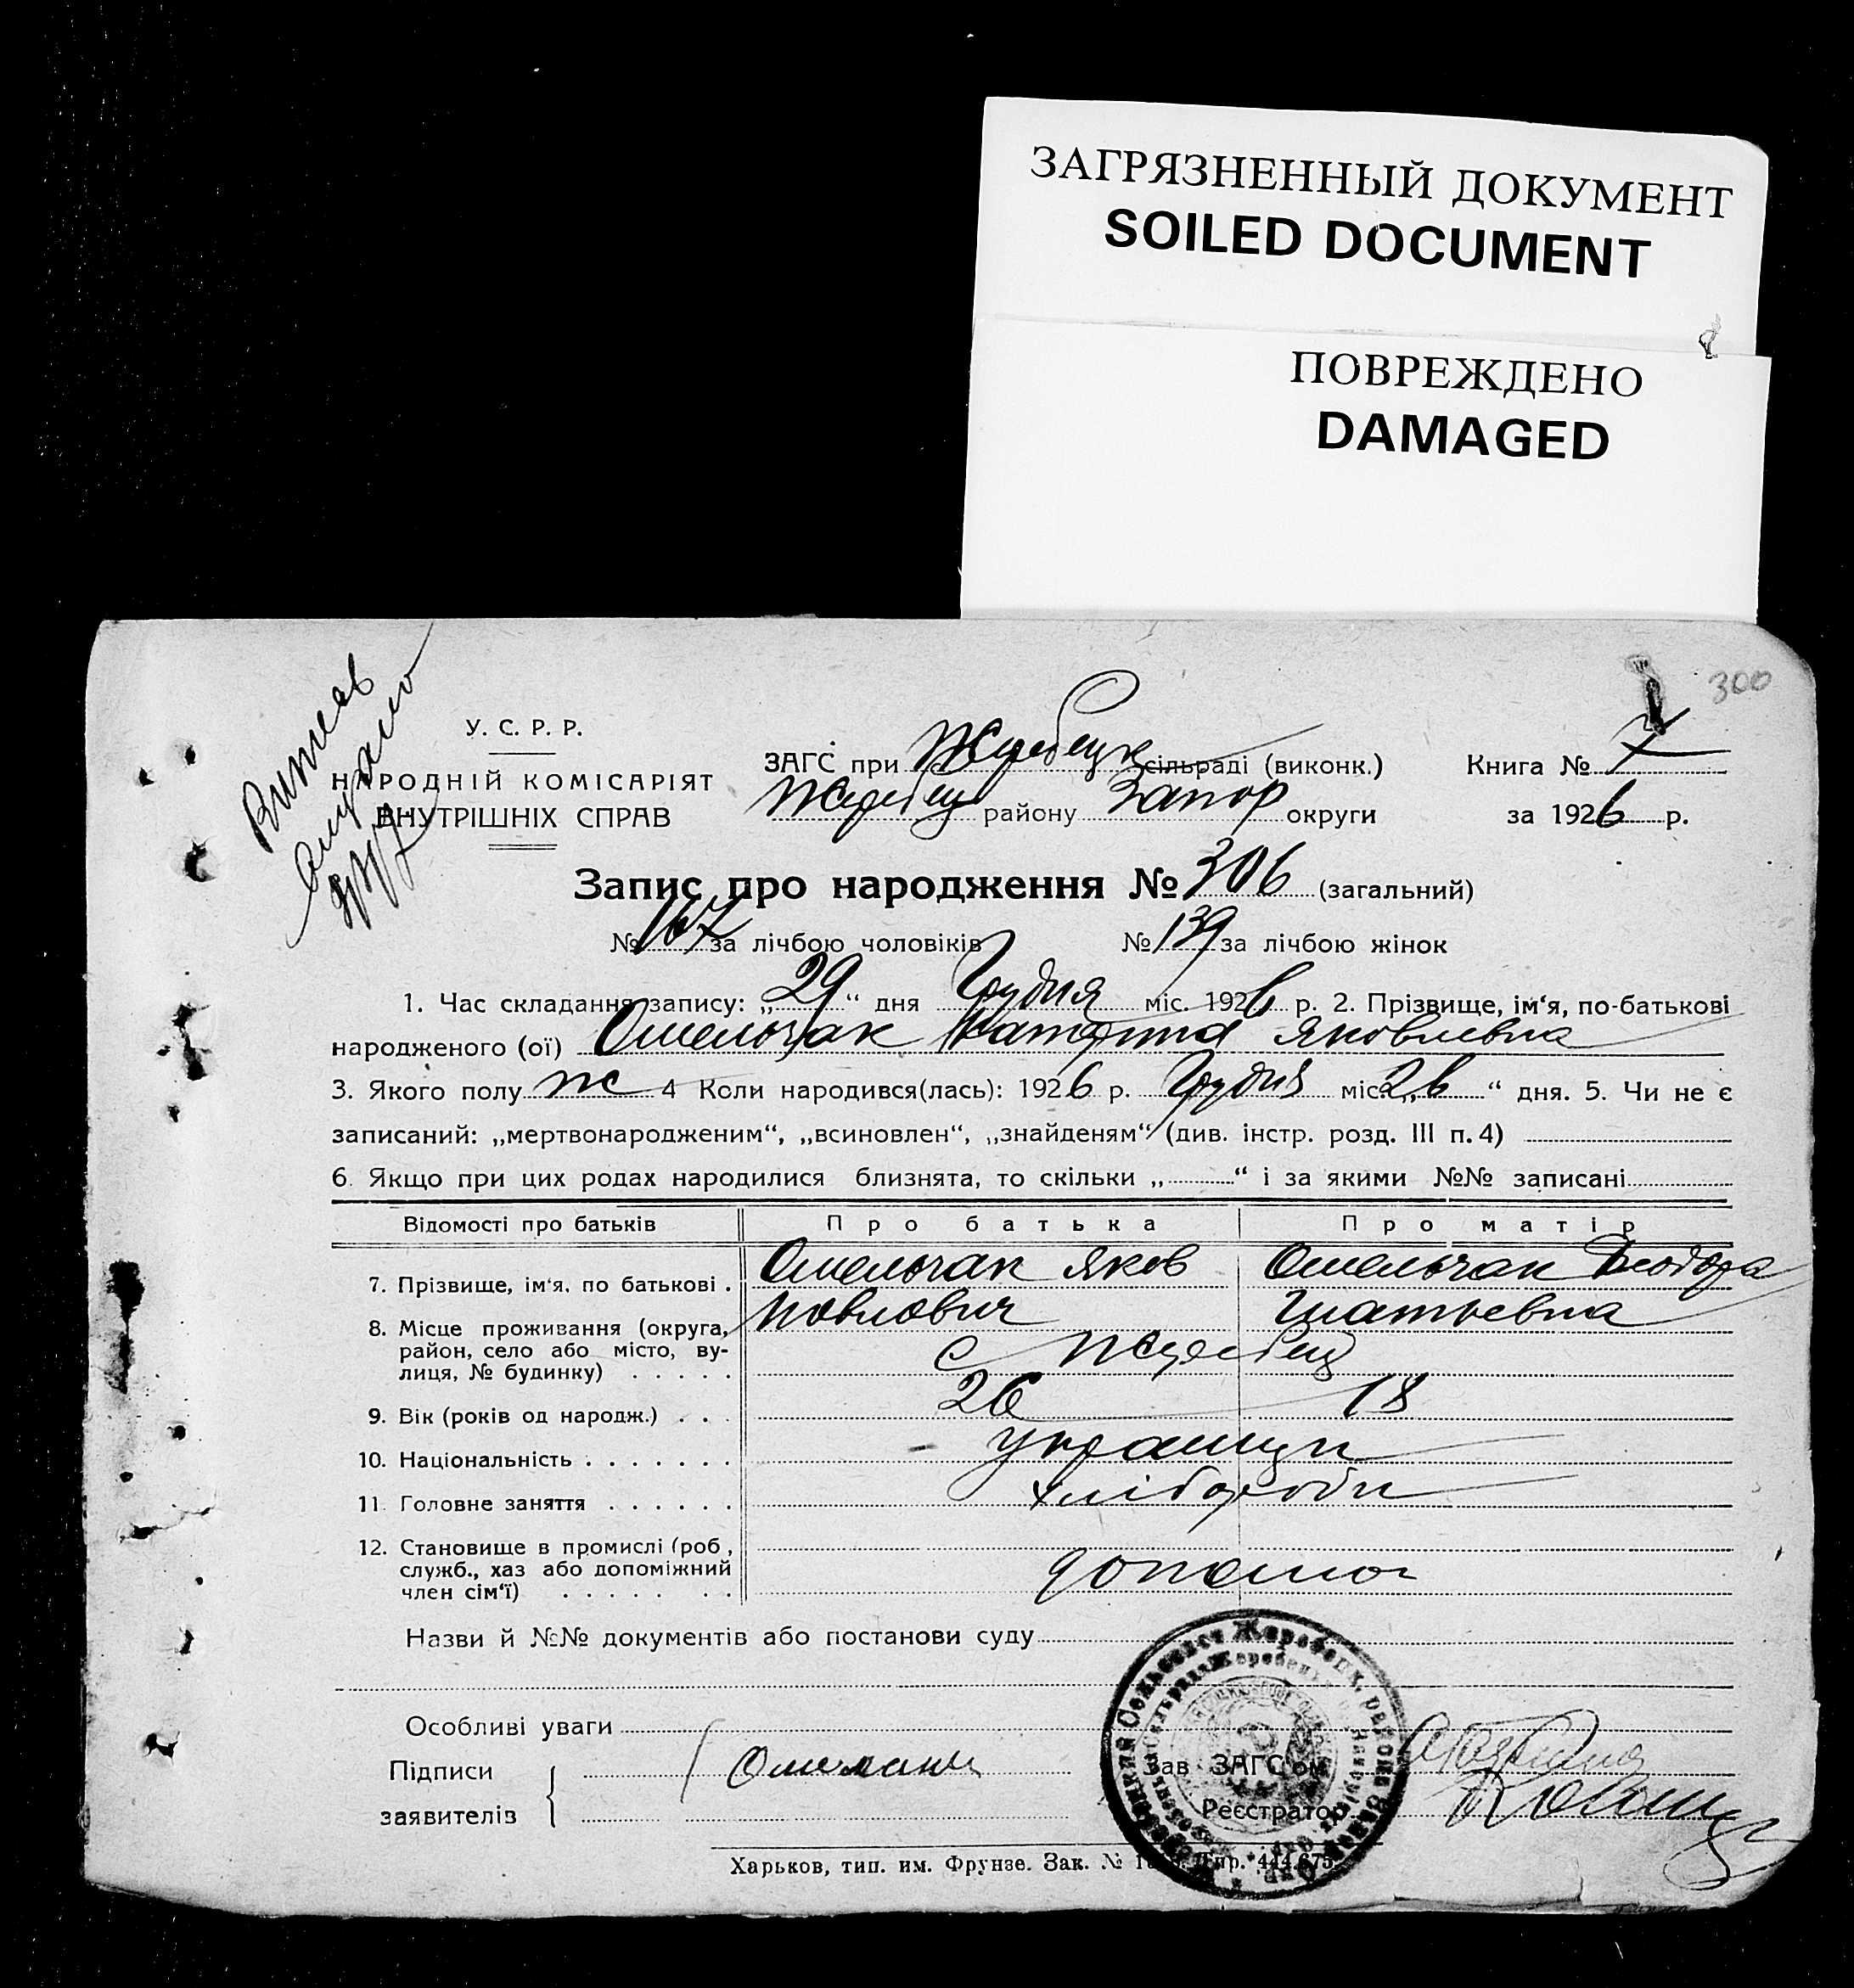 ЗАГРЯЗНЕННЫЙ ДОКУМЕНТ
SOILED DOCUMENT
ПОВРЕЖДЕНО
DAMAGED
300
Витяг
У. С. Р. Р.
НАРОДНІЙ КОМІСАРІЯТ
ВНУТРІШНІХ СПРАВ
ЗАГС при Жеребецк сільраді (виконк.) Книга № 7
Жеребец району Запор округи за 1926 р.
Запис про народження № 306 (загальний)
№ 167 за лічбою чоловіків № 139 за лічбою жінок
1. Час складання запису: „29“ дня Грудня міс. 1926 р. 2. Прізвище, ім‘я, по-батькові
народженого (ої) Омельчак Катерина Яковлевна
3. Якого полу ж 4 Коли народився(лась): 1926 р. Грудня міс. „26“ дня. 5. Чи не є
записаний: „мертвонародженим“, „всиновлен“, „знайденям“ (див. інстр. розд. III п. 4)
6. Якщо при цих родах народилися близнята, то скільки „ “ і за якими №№ записані
Відомості про батьків Про батька Про матір
7. Прізвище, ім‘я, по батькові . Омельчак Яков Омельчак Феодора
Повлович Гнатьевна
8. Місце проживання (округа,
район, село або місто, ву-
лиця, № будинку) . . . . . с Жеребец
9. Вік (років од народж.) . . . 26 18
10. Національність . . . . . . . украинци
11. Головне заняття . . . . . . хлібороби
12. Становище в промислі (роб.,
служб., хаз або допоміжний
член сім‘ї) . . . . . . .
Назви й №№ документів або постанови суду
Особливі уваги
Підписи
заявителів
Зав ЗАГС‘ом
Реєстратор
Харьков, тип. им. Фрунзе. Зак. №